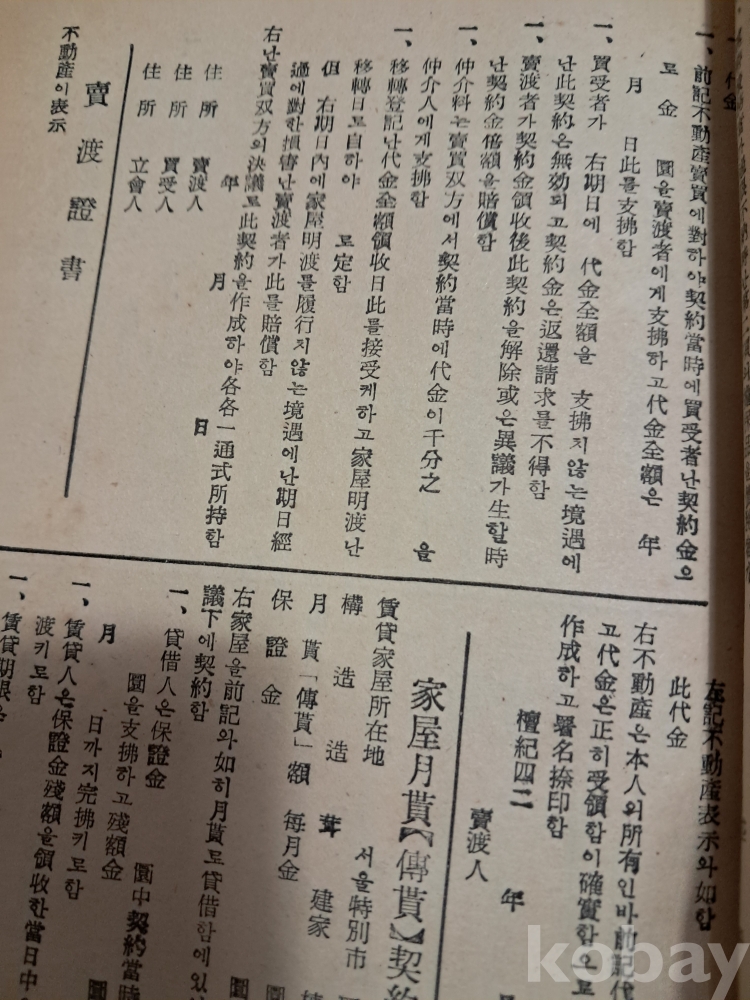 一、代金
一、前記不動産賣買에對하야契約當時에買受者난契約金으
로金 圓을賣渡者에게支拂하고代金全額은 年
月 日此를支拂함
一、買受者가 右期日에 代金全額을 支拂지않는境遇에
난此契約은無効되고契約金은返還請求를不得함
一、賣渡者가契約金領收後此契約을解除或은異議가生할時
난契約金倍額을賠償함
一、仲介料는賣買双方에서契約當時에代金이千分之 을
仲介人에게支拂함
一、移轉登記난代金全額領收日此를接受케하고家屋明渡난
移轉日로自하야 로定함
但 右期日內에家屋明渡를履行지않는境遇에난期日經
過에對한損害난賣渡者가此를賠償함
右난賣買双方의決議로此契約을作成하야各各一通式所持함
年 月 日
住所 賣渡人
住所 買受人
住所 立會人
賣渡證書
不動産이表示
左記不動産表示와如함
此代金
右不動産은本人의所有인바前記代
고代金은正히受領함이確實함으로
作成하고署名捺印함
檀紀四二 年
賣渡人
家屋月貰【傳貰】契約
賃貸家屋所在地 서울特別市
構造 造 葺 建家
月貰「傳貰」額 每月金 圓
保證金 圓
右家屋을前記와如히月貰로貸借함에있
議下에契約함
一、貸借人은保證金 圓中契約當時
圓을支拂하고殘額金 圓
月 日까지完拂키로함
一、賃貸人은保證金殘額을領收한當日中
渡키로함
一、賃貸期限은
kobay